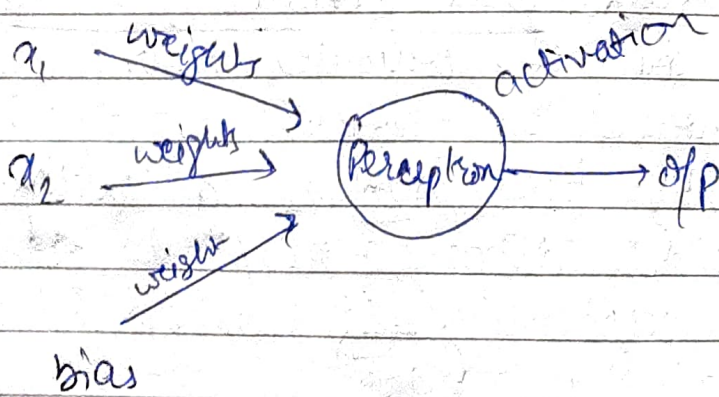 x₁
weights
activation
x₂
weights
Perceptron
O/P
weight
bias